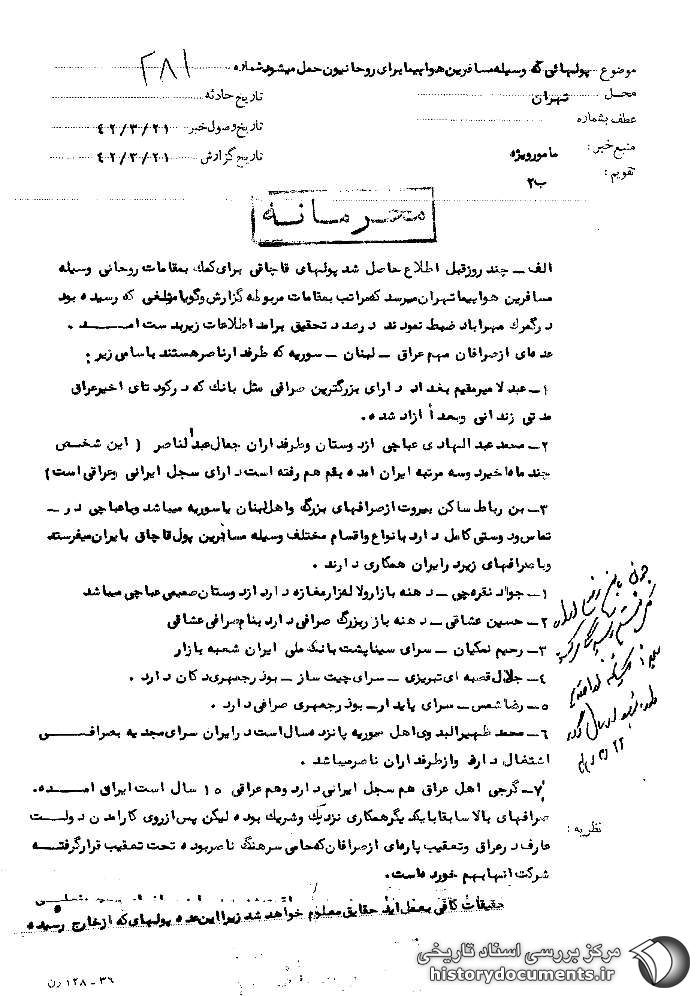 ۲۸۱
موضوع پولهائی که وسیله مسافرین هواپیما برای روحانیون حمل میشود شماره
محل تهران
تاریخ حادثه
عطف بشماره
تاریخ وصول خبر ۴۲/۳/۲۱
منبع خبر: مامور ویژه
تاریخ گزارش ۴۲/۳/۲۱
تقویم: ب۲
محرمانه
الف ــ چند روز قبل اطلاع حاصل شد پولهای قاچاقی برای کمک بمقامات روحانی وسیله
مسافرین هواپیما تهران میرسد که مراتب بمقامات مربوطه گزارش و گویا مبلغی که رسیده بود
در گمرک مهرآباد ضبط نمودند در صدد تحقیق برامد اطلاعات زیر بدست امد .
عده ای از صرافان مهم عراق ــ لبنان ــ سوریه که طرفدار ناصر هستند باسامی زیر :
۱ــ عبدلامیر مقیم بغداد دارای بزرگترین صرافی مثل بانک که در کودتای اخیر عراق
مدتی زندانی و بعداً ازاد شده .
۲ــ محمد عبدالهادی عباچی از دوستان و طرفداران جمال عبدالناصر ( این شخص
چند ماه اخیر دو سه مرتبه ایران امده بقم هم رفته است دارای سجل ایرانی و عراقی است )
۳ــ بن رباط ساکن بیروت از صرافهای بزرگ و اهل لبنان یا سوریه میباشد و با عباچی در ــ
تماس و دوستی کامل دارد بانواع و اقسام مختلف وسیله مسافرین پول قاچاق بایران میفرستد
و با صرافهای زیر در ایران همکاری دارند .
۱ــ جواد نقره چی ــ دهنه بازار و لاله زار مغازه دارد از دوستان صمیمی عباچی میباشد
۲ــ حسین عشاقی ــ دهنه بازار بزرگ صرافی دارد بنام صرافی عشاقی
۳ــ رحیم نمکیان ــ سرای سینا پشت بانک ملی ایران شعبه بازار
۴ــ جلال قصبه ای تبریزی ــ سرای چیت ساز ــ بوذرجمهری دکان دارد .
۵ــ رضا شمس ــ سرای پایدار ــ بوذرجمهری صرافی دارد .
۶ــ محمد ظهیرالدین اهل سوریه پانزده سال است در ایران سرای مجدیه بصرافی
اشتغال دارد و از طرفداران ناصر میباشد .
۷ــ گرجی اهل عراق هم سجل ایرانی دارد و هم عراقی ۱۵ سال است ایران امده .
نظریه :
صرافهای بالا سابقا با یکدیگر همکاری نزدیک و شریک بوده لیکن پس از روی کار امدن دولت
عارف در عراق و تعقیب پاره ای از صرافان که حامی سرهنگ ناصر بوده تحت تعقیب قرار گرفته
شرکت انها بهم خورده است.
حقیقات کافی بعمل اید حقایق معلوم خواهد شد زیرا این عده پولهای که از خارج رسیده
۳۶ - ۱۲۸ زن
مرکز بررسی اسناد تاریخی
historydocuments.ir